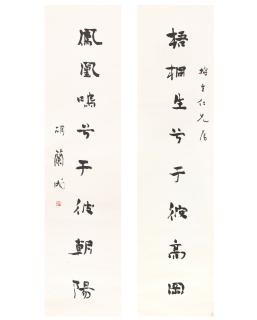 仁兄
梧桐生兮于彼高岡
鳳凰鳴兮于彼朝陽
胡蘭成